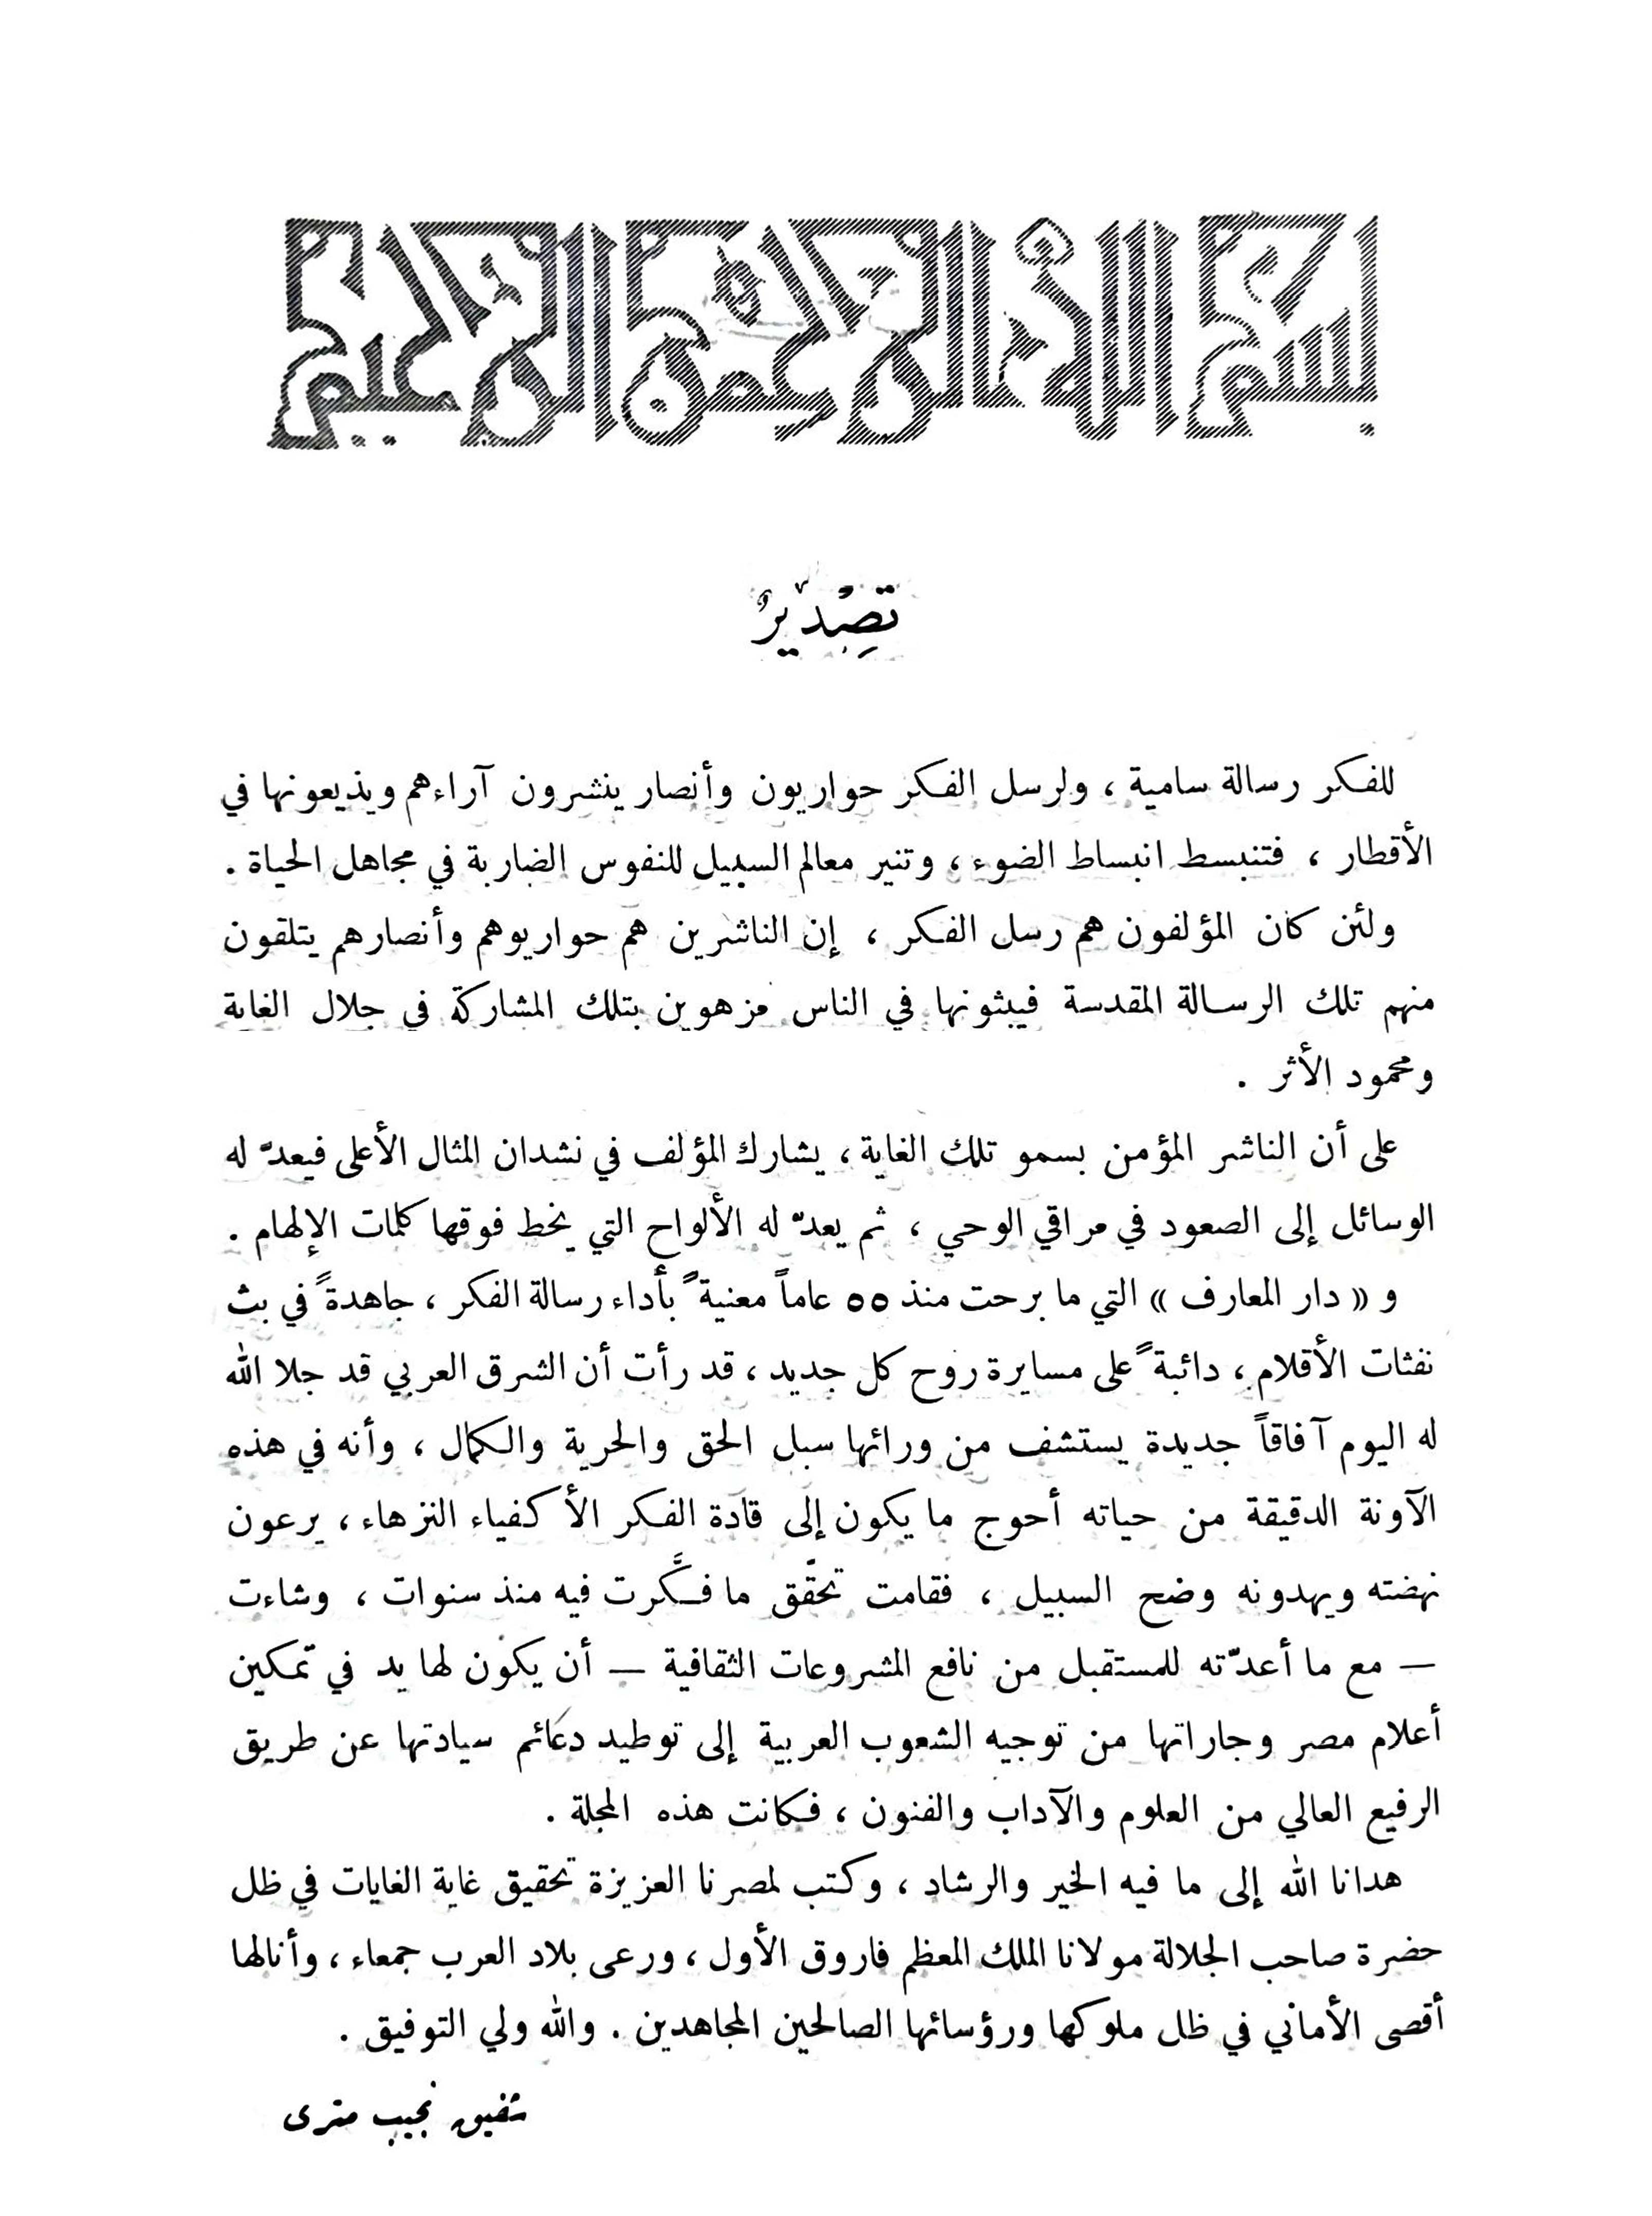 بسم الله الرحمن الرحيم
تصدير
للفكر رسالة سامية ، ولرسل الفكر حواريون وأنصار ينشرون آراءهم ويذيعونها في
الأقطار ، فتنبسط انبساط الضوء ، وتنير معالم السبيل للنفوس الضاربة في مجاهل الحياة .
ولئن كان المؤلفون هم رسل الفكر ، إن الناشرين هم حواريوهم وأنصارهم يتلقون
منهم تلك الرسالة المقدسة فيبثونها في الناس مزهوين بتلك المشاركة في جلال الغاية
ومحمود الأثر .
على أن الناشر المؤمن بسمو تلك الغاية ، يشارك المؤلف في نشدان المثال الأعلى فيعدّ له
الوسائل إلى الصعود في مراقي الوحي ، ثم يعدّ له الألواح التي يخط فوقها كلمات الإلهام .
و « دار المعارف » التي ما برحت منذ ٥٥ عاماً معنيةً بأداء رسالة الفكر ، جاهدةً في بث
نفثات الأقلام ، دائبةً على مسايرة روح كل جديد ، قد رأت أن الشرق العربي قد جلا الله
له اليوم آفاقاً جديدة يستشف من ورائها سبل الحق والحرية والكمال ، وأنه في هذه
الآونة الدقيقة من حياته أحوج ما يكون إلى قادة الفكر الأكفياء النزهاء ، يرعون
نهضته ويهدونه وضح السبيل ، فقامت تحقّق ما فكَّرت فيه منذ سنوات ، وشاءت
— مع ما أعدّته للمستقبل من نافع المشروعات الثقافية — أن يكون لها يد في تمكين
أعلام مصر وجاراتها من توجيه الشعوب العربية إلى توطيد دعائم سيادتها عن طريق
الرفيع العالي من العلوم والآداب والفنون ، فكانت هذه المجلة .
هدانا الله إلى ما فيه الخير والرشاد ، وكتب لمصرنا العزيزة تحقيق غاية الغايات في ظل
حضرة صاحب الجلالة مولانا الملك المعظم فاروق الأول ، ورعى بلاد العرب جمعاء ، وأنالها
أقصى الأماني في ظل ملوكها ورؤسائها الصالحين المجاهدين . والله ولي التوفيق .
شفيق نجيب مترى